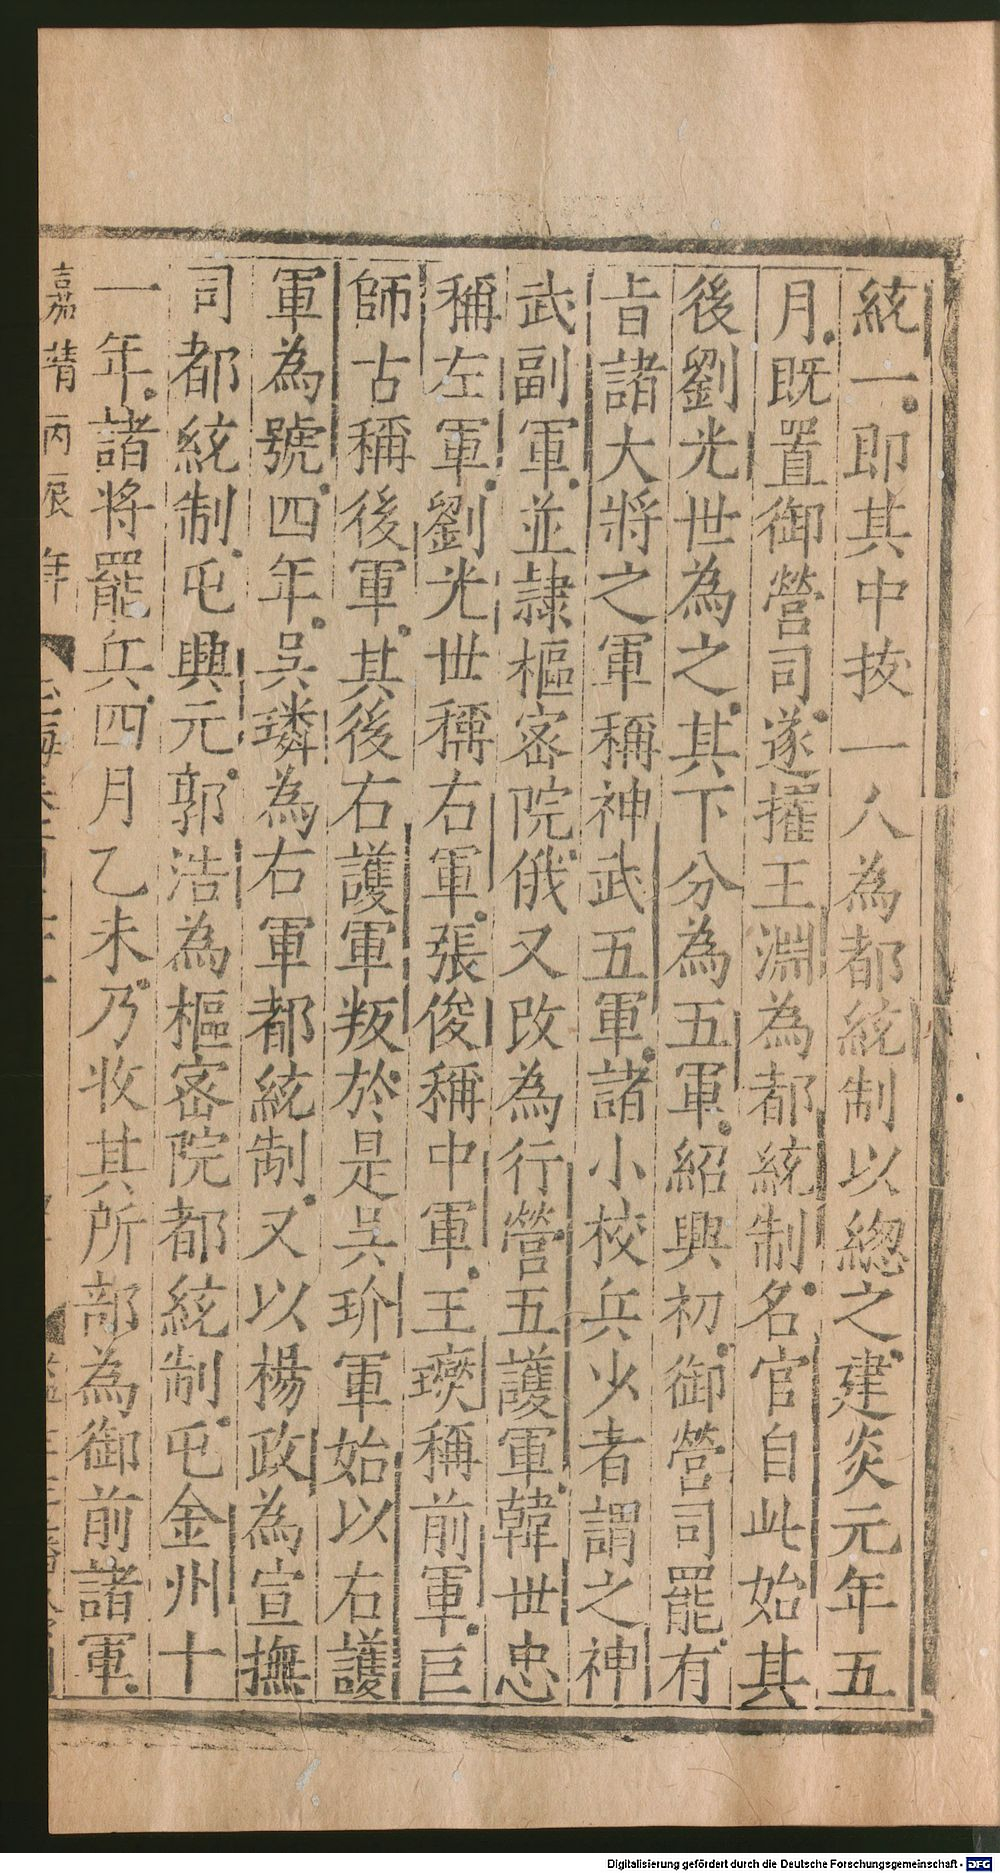 統一即其中抜一人為都統制以總之建炎元年五
月既置御營司遂擢王淵為都統制名官自此始其
後劉光世為之其下分為五軍紹興初御營司罷有
旨諸大將之軍稱神武五軍諸小校兵少者謂之神
武副軍並隷樞宻院俄又改為行營五護軍韓世忠
稱左軍劉光世稱右軍張俊稱中軍王𤫉稱前軍巨
師古稱後軍其後右護軍叛於是吳玠軍始以右護
軍為號四年吳璘為右軍都統制又以楊政為宣撫
司都統制屯興元郭浩為樞宻院都統制屯金州十
一年諸將罷兵四月乙未乃收其所部為御前諸軍
嘉靖丙辰年
Digitalisierung gefördert durch die Deutsche Forschungsgemeinschaft - DFG